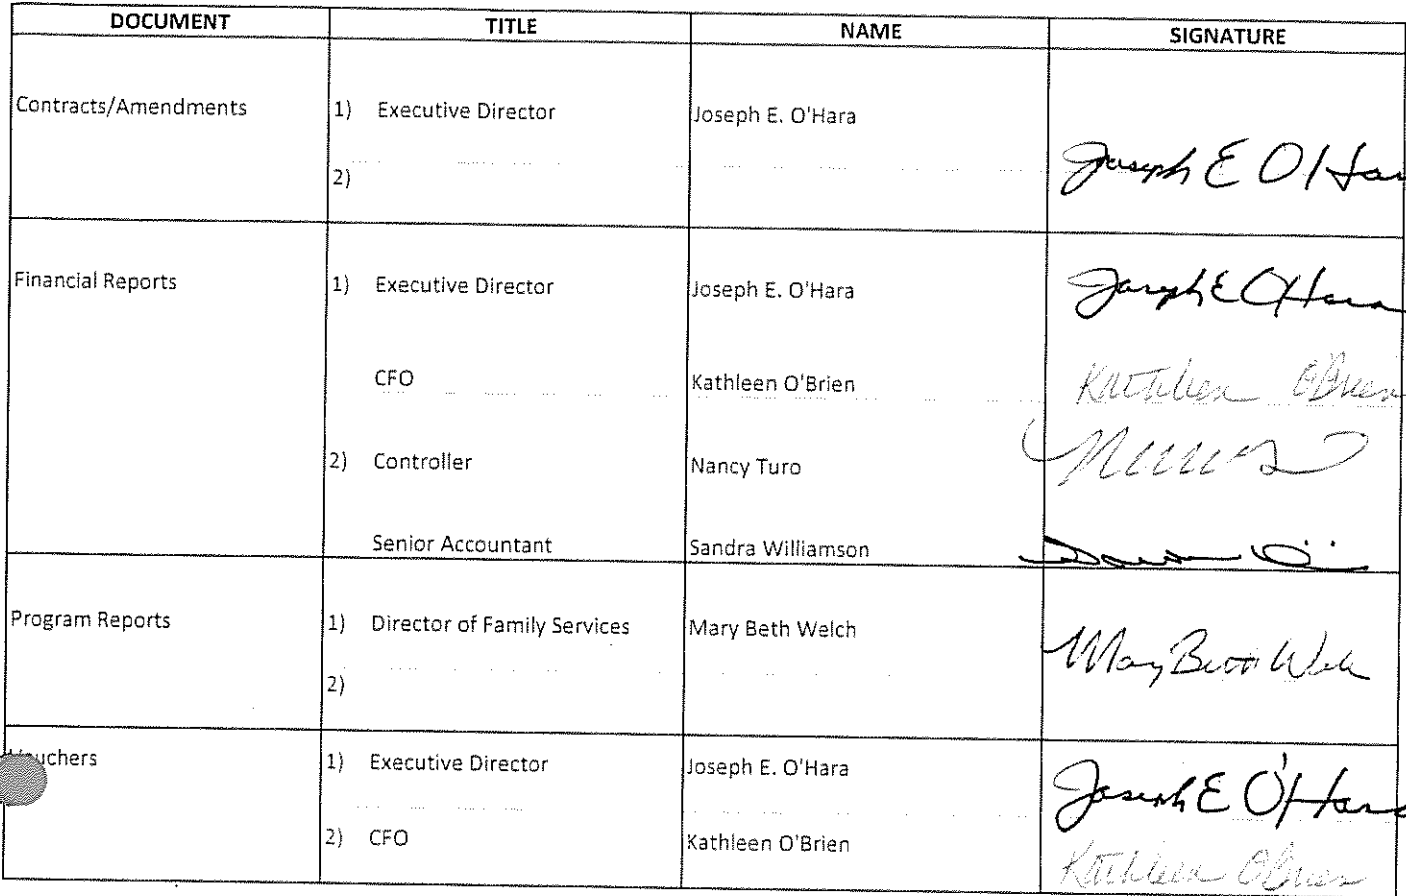 DOCUMENT TITLE NAME SIGNATURE
Contracts/Amendments 1) Executive Director Joseph E. O'Hara
Joseph E O'Har
2)
Financial Reports 1) Executive Director Joseph E. O'Hara Joseph E O'Hara
CFO Kathleen O'Brien Kathleen O'Brien
2) Controller Nancy Turo
Senior Accountant Sandra Williamson
Program Reports 1) Director of Family Services Mary Beth Welch Mary Beth Welch
2)
Vouchers 1) Executive Director Joseph E. O'Hara Joseph E O'Hara
2) CFO Kathleen O'Brien Kathleen O'Brien